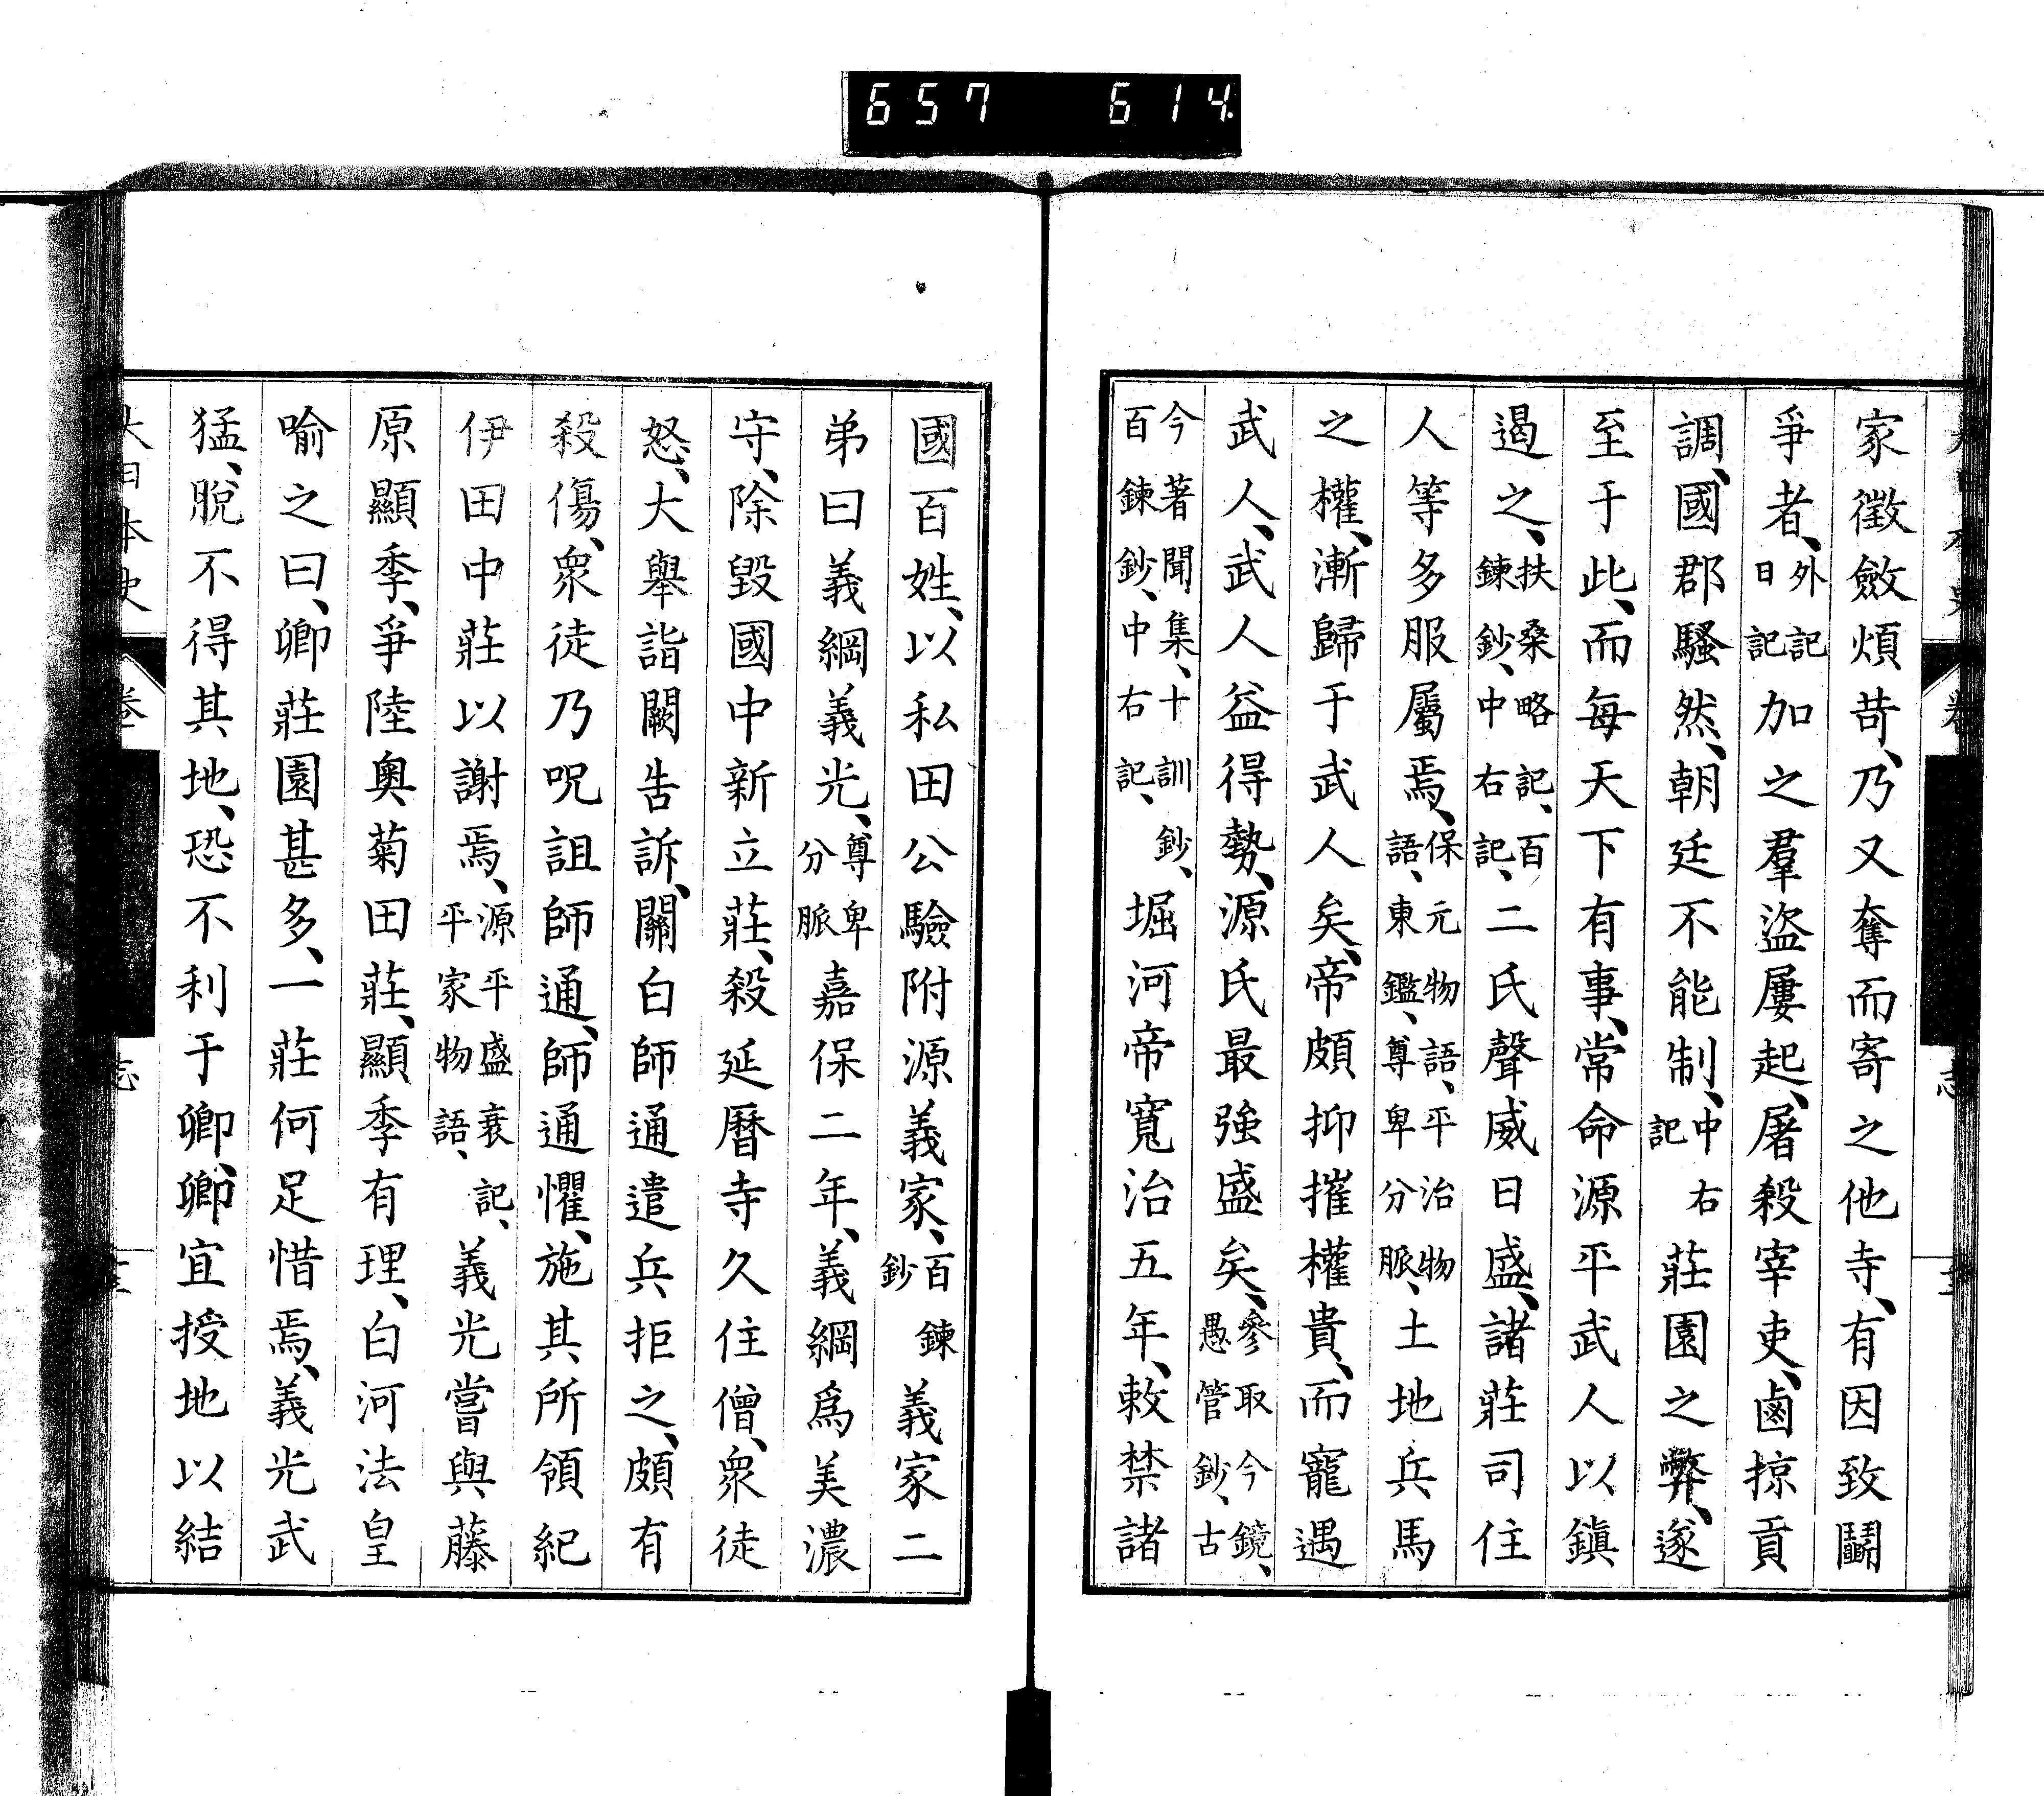 657 614.
家徵斂煩苛、乃又奪而寄之他寺、有因致鬭
爭者、外記日記加之羣盜屢起、屠殺宰吏、鹵掠貢
調、國郡騷然、朝廷不能制、中右記莊園之弊、遂
至于此、而每天下有事、常命源平武人以鎭
遏之、扶桑略記、百鍊鈔、中右記、二氏聲威日盛、諸莊司住
人等多服屬焉、保元物語、平治物語、東鑑、尊卑分脈、土地兵馬
之權、漸歸于武人矣、帝頗抑摧權貴、而寵遇
武人、武人益得勢、源氏最強盛矣、參取今鏡、愚管鈔、古
今著聞集、十訓鈔、百鍊鈔、中右記、堀河帝寬治五年、敕禁諸
國百姓、以私田公驗附源義家、百鍊鈔義家二
弟曰義綱義光、尊卑分脈嘉保二年、義綱爲美濃
守、除毀國中新立莊、殺延曆寺久住僧、衆徒
怒、大舉詣闕告訴、關白師通遣兵拒之、頗有
殺傷、衆徒乃咒詛師通、師通懼、施其所領紀
伊田中莊以謝焉、源平盛衰記、平家物語、義光嘗與藤
原顯季、爭陸奧菊田莊、顯季有理、白河法皇
喻之曰、卿莊園甚多、一莊何足惜焉、義光武
猛、脫不得其地、恐不利于卿、卿宜授地以結
大日本史 卷 志